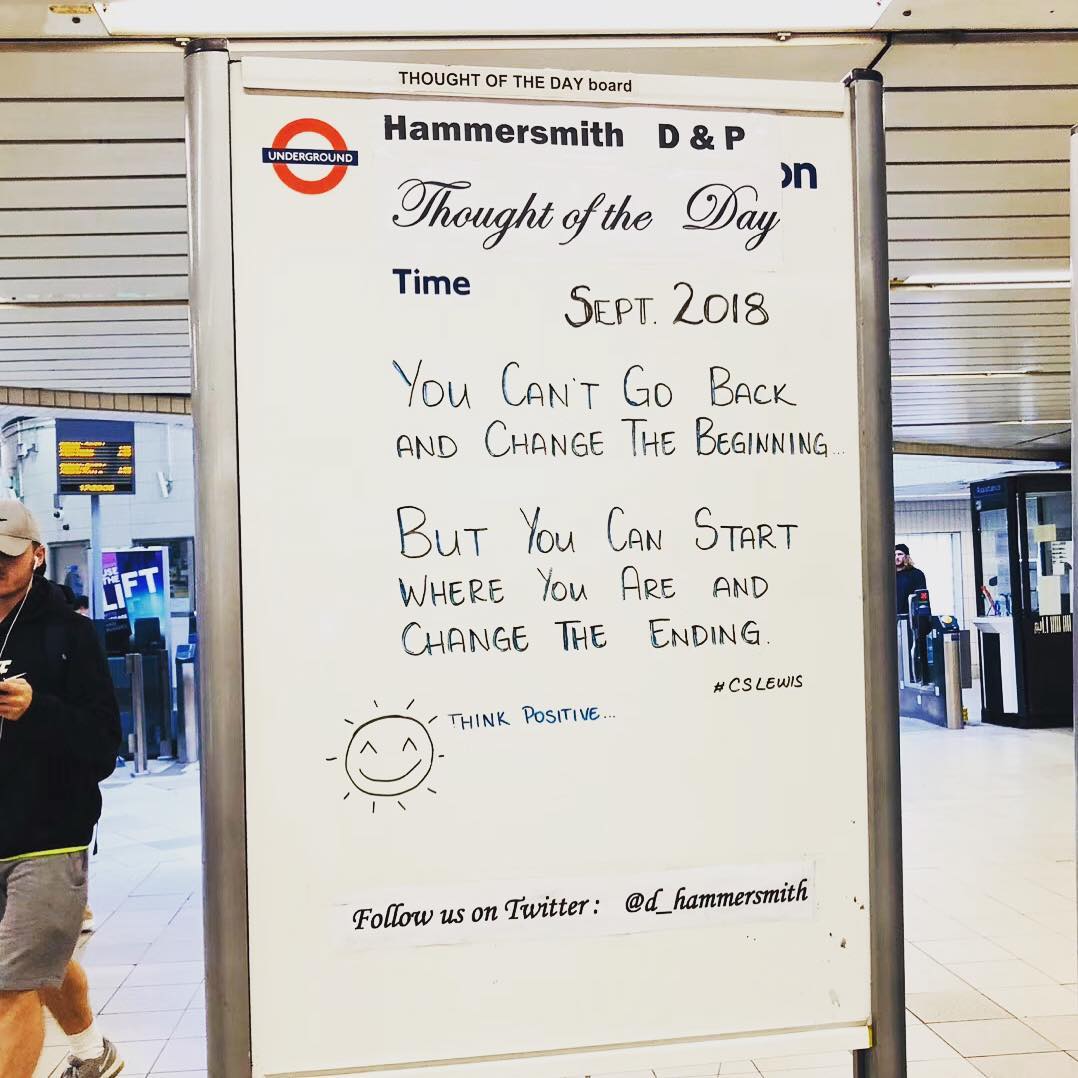 THOUGHT OF THE DAY board
UNDERGROUND
Hammersmith D & P
on
Thought of the Day
Time
SEPT. 2018
YOU CAN'T GO BACK
AND CHANGE THE BEGINNING...
BUT YOU CAN START
WHERE YOU ARE AND
CHANGE THE ENDING.
#CSLEWIS
THINK POSITIVE...
Follow us on Twitter : @d_hammersmith
USE
THE
LIFT